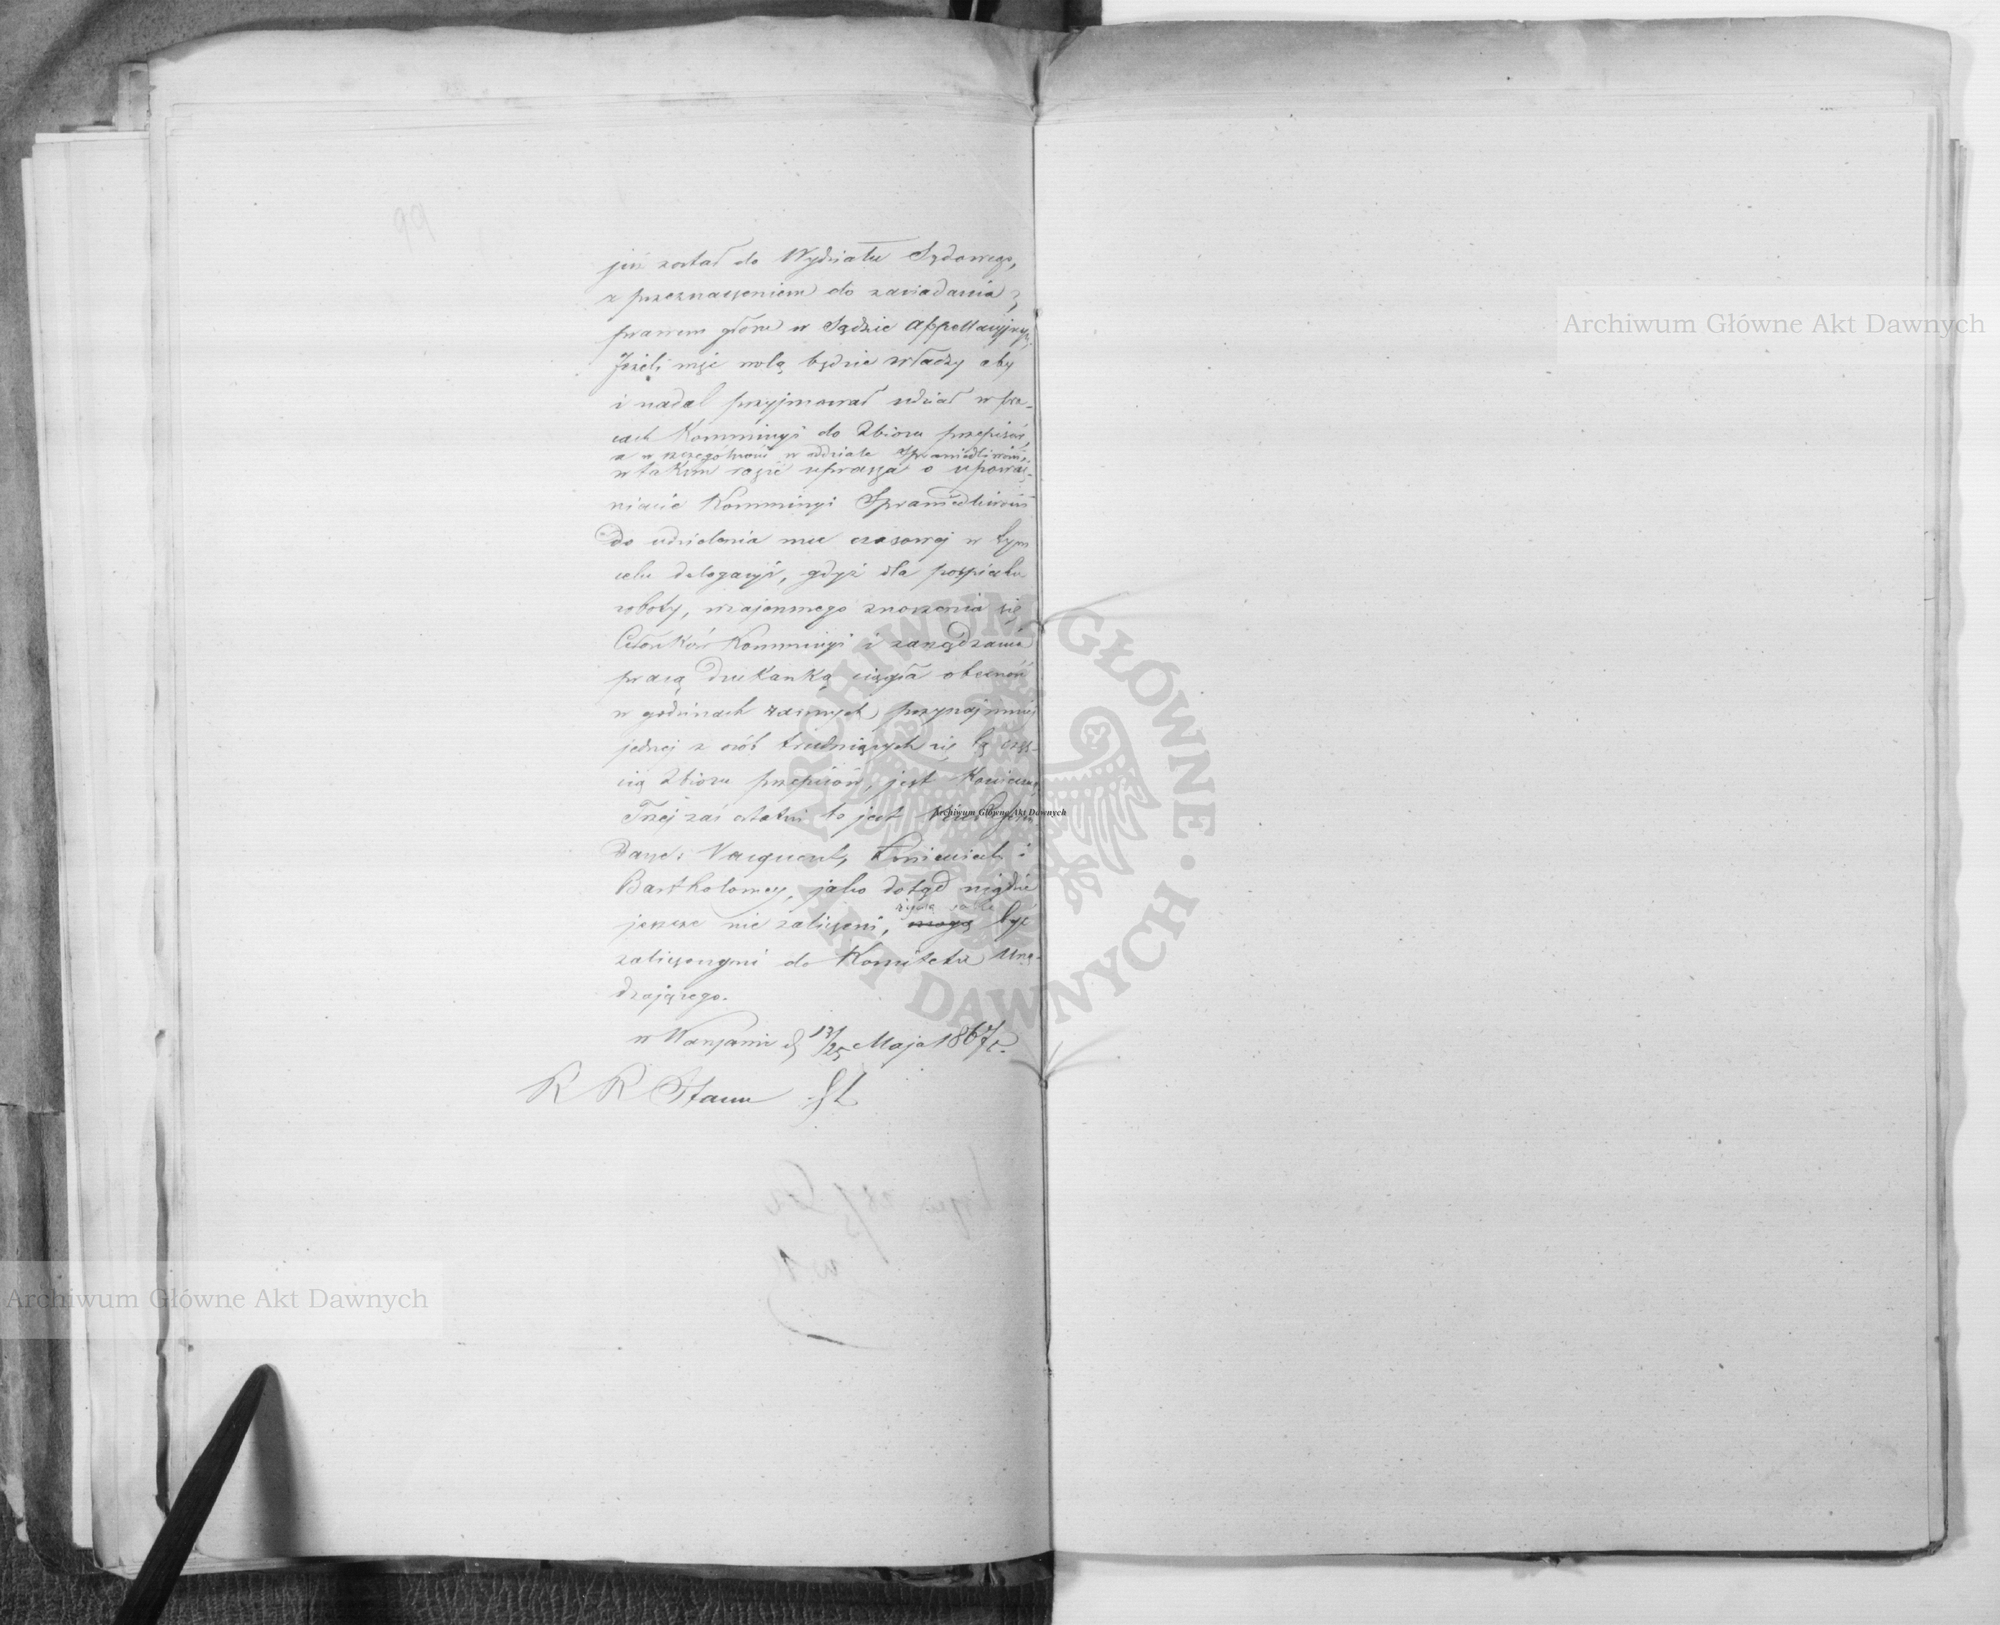 już został do Wydziału Sądowego,
z przeznaczeniem do zasiadania z
prawem głosu w Sądzie Appellacyjnym.
Jeżeli więc wolą będzie władzy aby
i nadal przyjmował udział w pra-
cach Kommissyi do Zbioru przepisów,
a w szczególności w oddziale Sprawiedliwości,
w takim razie uprasza o upoważ-
nienie Kommissyi Sprawiedliwości
do udzielenia mu czasowej w tym
celu delegacyi, gdyż dla pośpiechu
roboty, wzajemnego znoszenia się
Członków Kommissyi i zarządzania
pracą drukarską ciągła obecność
w godzinach rannych przynajmniej
jednej z osób trudniących się tą czę-
cią zbioru przepisów, jest konieczną
Trzej zaś ostatni to jest
Vacqueret, i
Bartholomey, jako dotąd nigdzie
życzą sobie
jeszcze nie zaliczeni, mogą być
zaliczonymi do Komitetu Urzą-
dzającego.
w Warszawie d 13/25 Maja 1867 r.
R R Stanu
Archiwum Główne Akt Dawnych
Archiwum Główne Akt Dawnych
Archiwum Główne Akt Dawnych
ARCHIWUM GŁÓWNE · AKT DAWNYCH ·